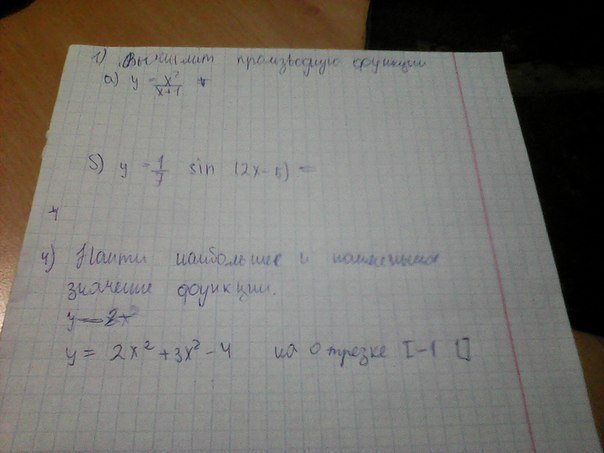 1) Вычислит производную функции
а) y = x²/x+1
б) y = 1/7 sin (2x-5) =
4
4) Найти наибольшее и наименьшее
значение функции.
y = 2x²
y = 2x² + 3x² - 4 на отрезке [-1 1]